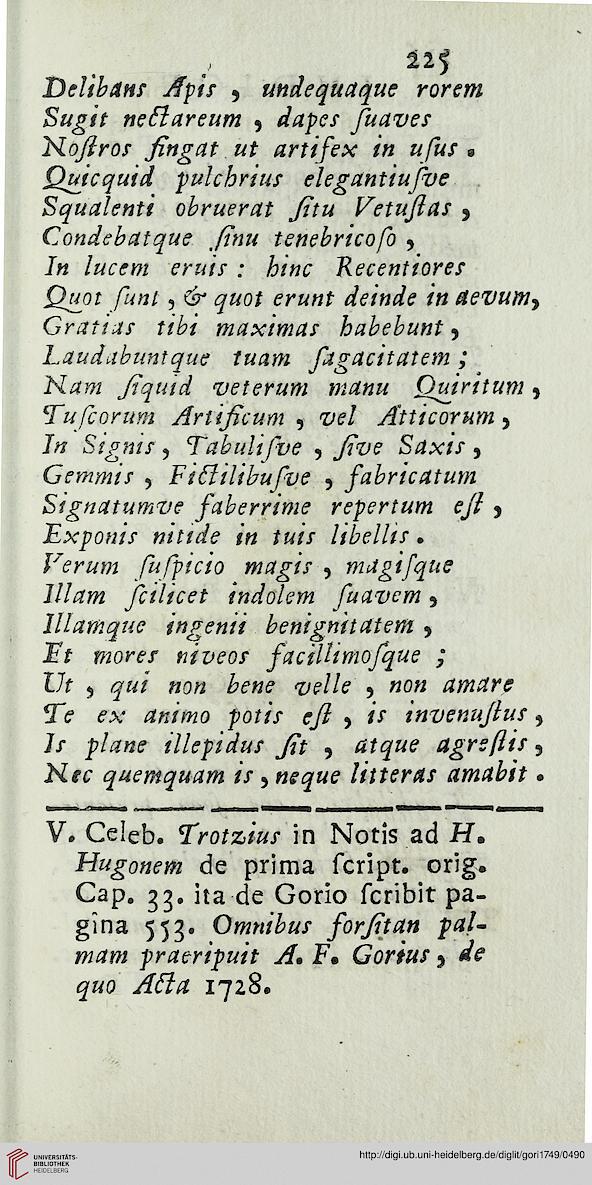 225
Delibans Apis , undequaque rorem
Sugit nectareum , dapes ſuaves
Noſtros fingat ut artifex in uſus .
Quicquid pulchrius elegantiuſve
Squalenti obruerat ſitu Vetuſtas ,
Condebatque ſinu tenebricoſo ,
In lucem eruis : hinc Recentiores
Quot ſunt , & quot erunt deinde in aevum,
Gratias tibi maximas habebunt ,
Laudabuntque tuam ſagacitatem ;
Nam ſiquid veterum manu Quiritum ,
Tuſcorum Artificum , vel Atticorum ,
In Signis , Tabuliſve , ſive Saxis ,
Gemmis , Fictilibuſve , fabricatum
Signatumve faberrime repertum eſt ,
Exponis nitide in tuis libellis .
Verum ſuſpicio magis , magiſque
Illam ſcilicet indolem ſuavem ,
Illamque ingenii benignitatem ,
Et mores niveos facillimoſque ;
Ut , qui non bene velle , non amare
Te ex animo potis eſt , is invenuſtus ,
Is plane illepidus ſit , atque agreſtis ,
Nec quemquam is , neque litteras amabit .
V. Celeb. Trotzius in Notis ad H.
Hugonem de prima ſcript. orig.
Cap. 33. ita de Gorio ſcribit pa-
gina 553. Omnibus forſitan pal-
mam praeripuit A. F. Gorius , de
quo Acta 1728.
UNIVERSITÄTS-
BIBLIOTHEK
HEIDELBERG
http://digi.ub.uni-heidelberg.de/diglit/gori1749/0490